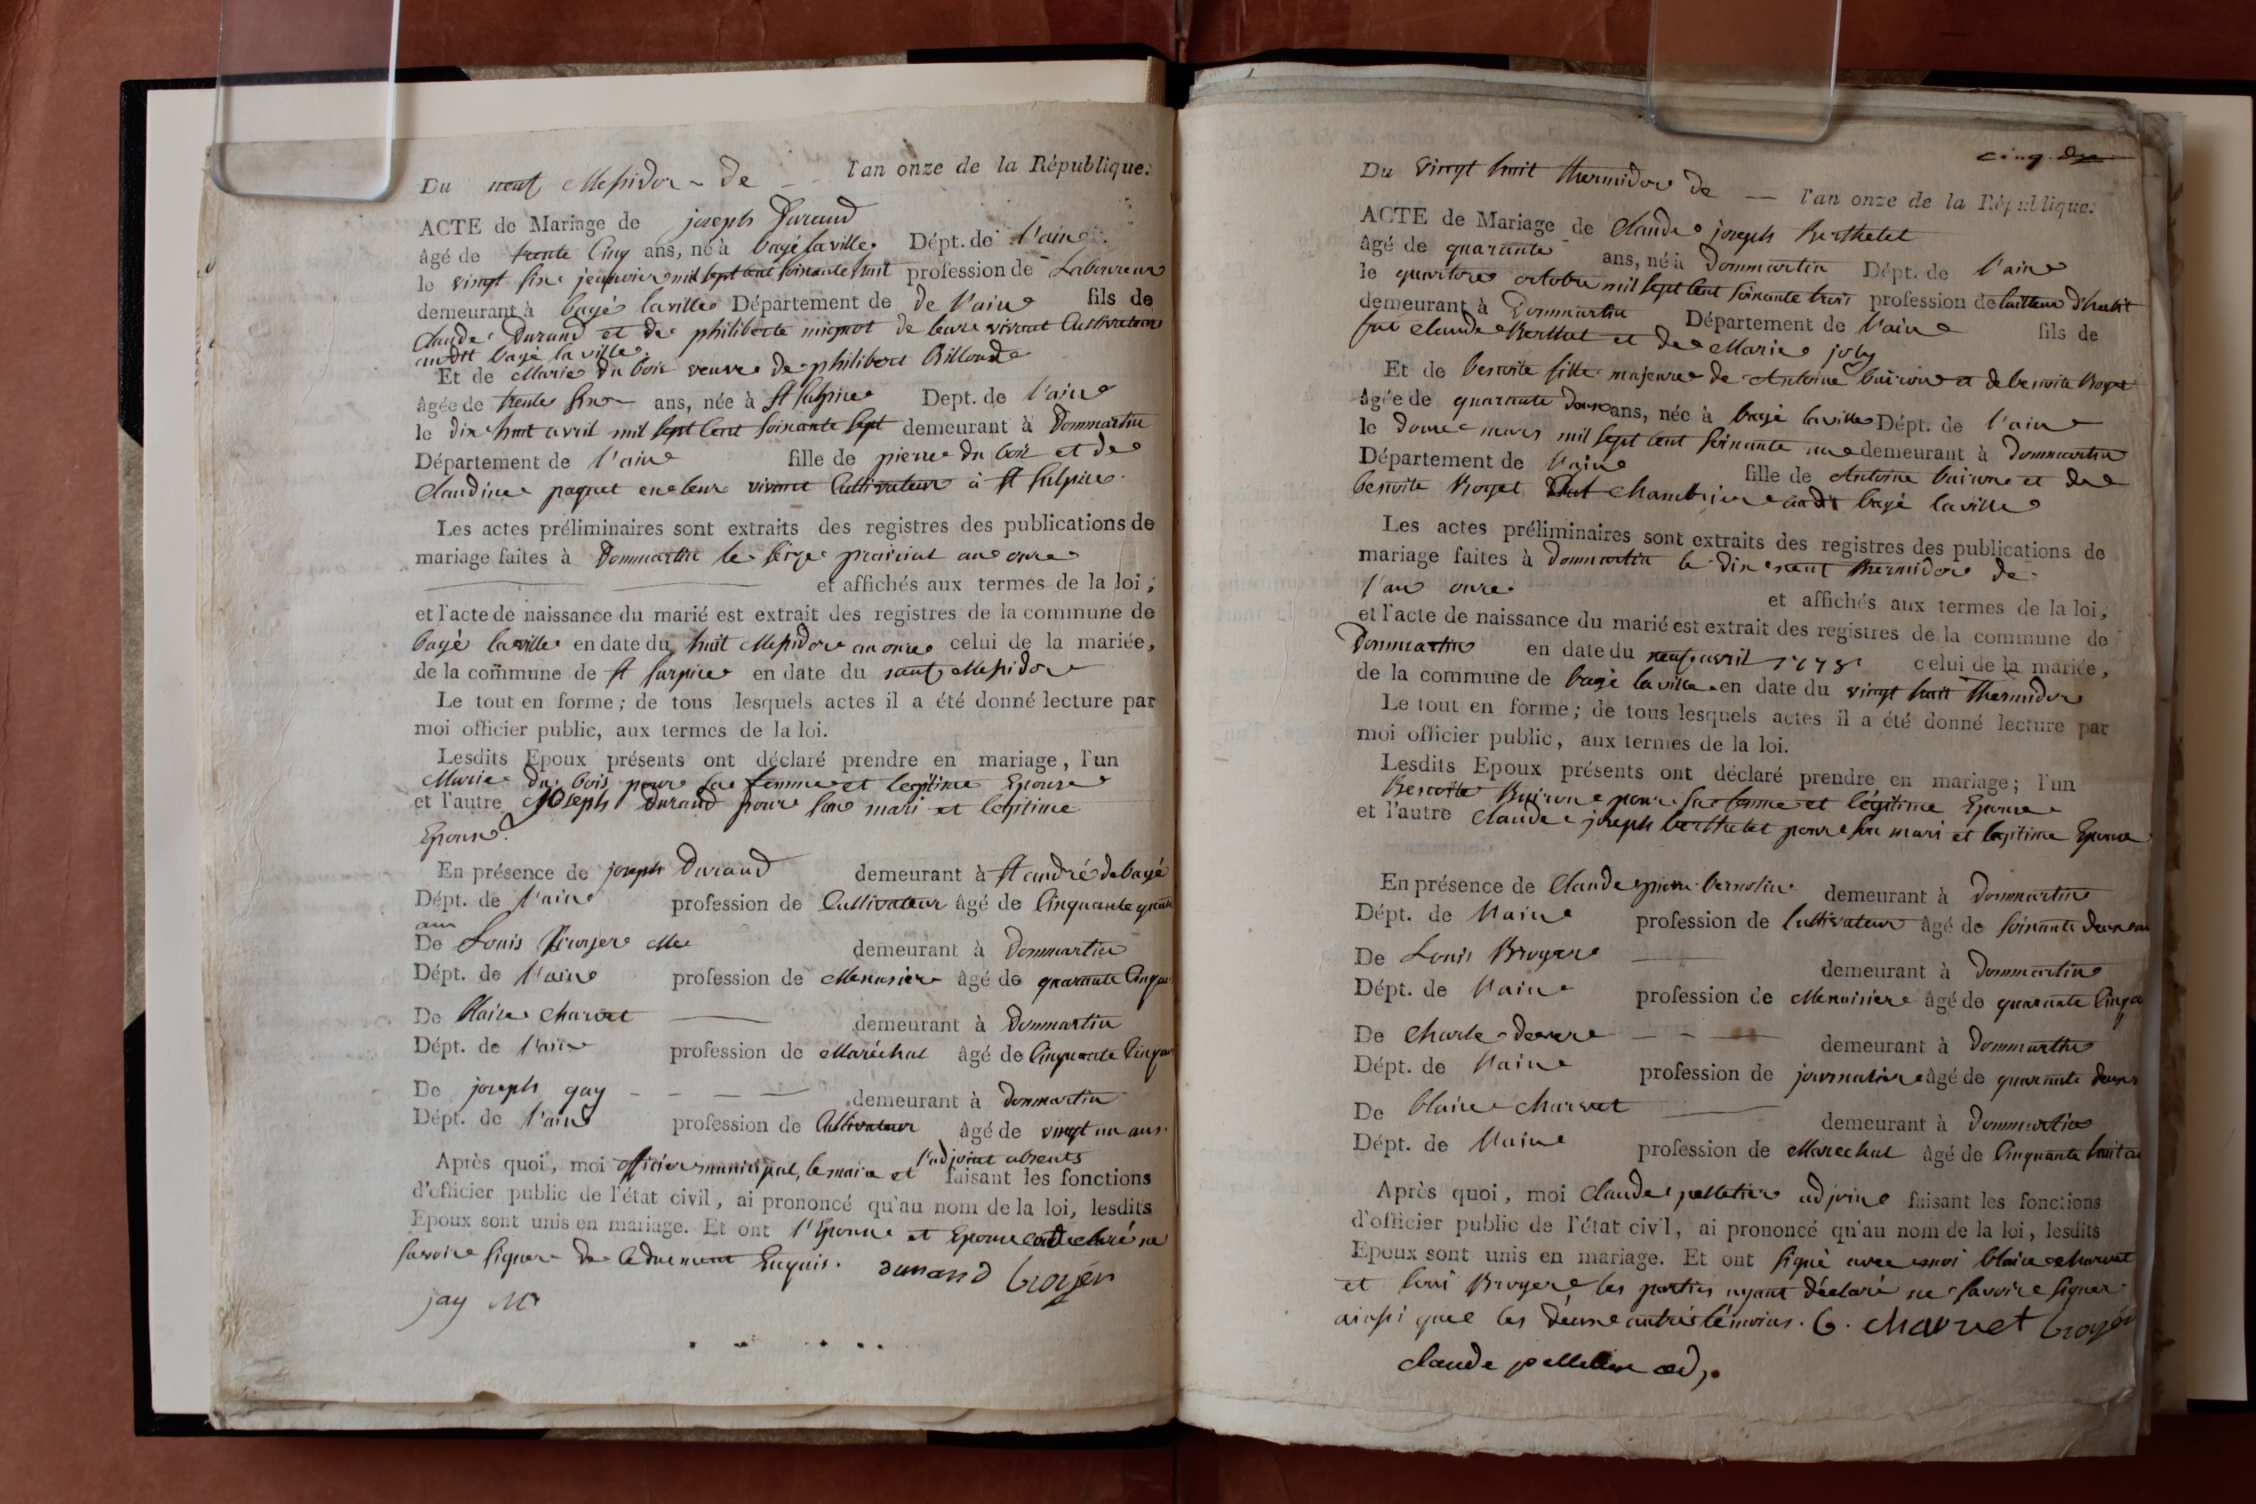 Du neuf Messidor de l'an onze de la République.
ACTE de Mariage de joseph Durand
âgé de trente Cinq ans, né à bagé laville Dépt. de l'ain
le vingt six jeanvier mil sept cent soixante huit profession de Laboureur
demeurant à bagé laville Département de de l'ain fils de
Claude Durand et de philiberte mignot de leure vivant Cultivateur
audit bagé la ville
Et de Marie du bois veuve de philibert Billoud
âgée de trente six ans, née à st sulpice Dept. de l'ain
le dix huit avril mil sept cent soixante sept demeurant à Dommartin
Département de l'ain fille de pierre du bois et de
Claudine paquet en leur vivant Cultivateur à st sulpice.
Les actes préliminaires sont extraits des registres des publications de
mariage faites à Dommartin le seize prairial an onze
et affichés aux termes de la loi ;
et l'acte de naissance du marié est extrait des registres de la commune de
bagé laville en date du huit Messidor an onze celui de la mariée,
de la commune de st surpice en date du neuf Messidor
Le tout en forme ; de tous lesquels actes il a été donné lecture par
moi officier public, aux termes de la loi.
Lesdits Epoux présents ont déclaré prendre en mariage, l'un
Marie du bois pour sa femme et legitime Epouse
et l'autre Joseph Durand pour son mari et legitime
Epoux.
En présence de joseph Durand demeurant à st andré de bagé
Dépt. de l'ain profession de Cultivateur âgé de Cinquante quatre
ans
De Louis Broyer demeurant à Dommartin
Dépt. de l'ain profession de Menusier âgé de quarante Cinq
De blaise charvet demeurant à Dommartin
Dépt. de l'ain profession de Maréchal âgé de Cinquante Cinq
De joseph gay demeurant à Dommartin
Dépt. de l'ain profession de Cultivateur âgé de vingt un ans.
Après quoi, moi officier municipal, le maire et l'adjoint absents faisant les fonctions
d'officier public de l'état civil, ai prononcé qu'au nom de la loi, lesdits
Epoux sont unis en mariage. Et ont l'Epoux et Epouse déclaré ne
savoire signer de Ceduement Enquis. durand broyer
jay
cinq.
Du vingt huit thermidor de l'an onze de la République.
ACTE de Mariage de Claude joseph Berthelet
âgé de quarante ans, né à Dommartin Dépt. de l'ain
le quatorze octobre mil sept cent soixante trois profession de tailleur d'habit
demeurant à Dommartin Département de l'ain fils de
feu claude Berthet et de Marie joly
Et de benoite fille majeure de Antoine buiron et de benoite Broyet
âgée de quarante deux ans, née à bagé laville Dépt. de l'ain
le douze mars mil sept cent soixante une demeurant à Dommartin
Département de l'ain fille de Antoine buiron et de
benoite Broyet chambriere audit bagé laville
Les actes préliminaires sont extraits des registres des publications de
mariage faites à Dommartin le dix neuf thermidor de
l'an onze et affichés aux termes de la loi,
et l'acte de naissance du marié est extrait des registres de la commune de
Dommartin en date du neuf avril 1778 celui de la mariée,
de la commune de bagé la ville en date du vingt huit thermidor
Le tout en forme ; de tous lesquels actes il a été donné lecture par
moi officier public, aux termes de la loi.
Lesdits Epoux présents ont déclaré prendre en mariage ; l'un
Benoite Buiron pour sa femme et légitime Epouse
et l'autre claude joseph berthelet pour son mari et legitime Epoux
En présence de Claude pierre bernolin demeurant à Dommartin
Dépt. de l'ain profession de Cultivateur âgé de soixante deux ans
De Louis Broyer demeurant à Dommartin
Dépt. de l'ain profession de Menuisier âgé de quarante Cinq
De charle demeurant à Dommartin
Dépt. de l'ain profession de journalier âgé de quarante deux
De blaise charvet demeurant à Dommartin
Dépt. de l'ain profession de Marechal âgé de Cinquante huit
Après quoi, moi Claude pelletier adjoint faisant les fonctions
d'officier public de l'état civil, ai prononcé qu'au nom de la loi, lesdits
Epoux sont unis en mariage. Et ont signé avec moi blaise charvet
et loui Broyer les parties ayant déclaré ne savoire signer
ainsi que les deux autres témoins. b. charvet broyer
claude pelletier adj.